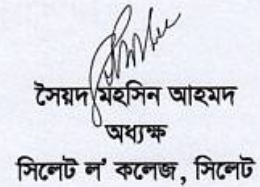 সৈয়দ মহসিন আহমদ
অধ্যক্ষ
সিলেট ল' কলেজ, সিলেট